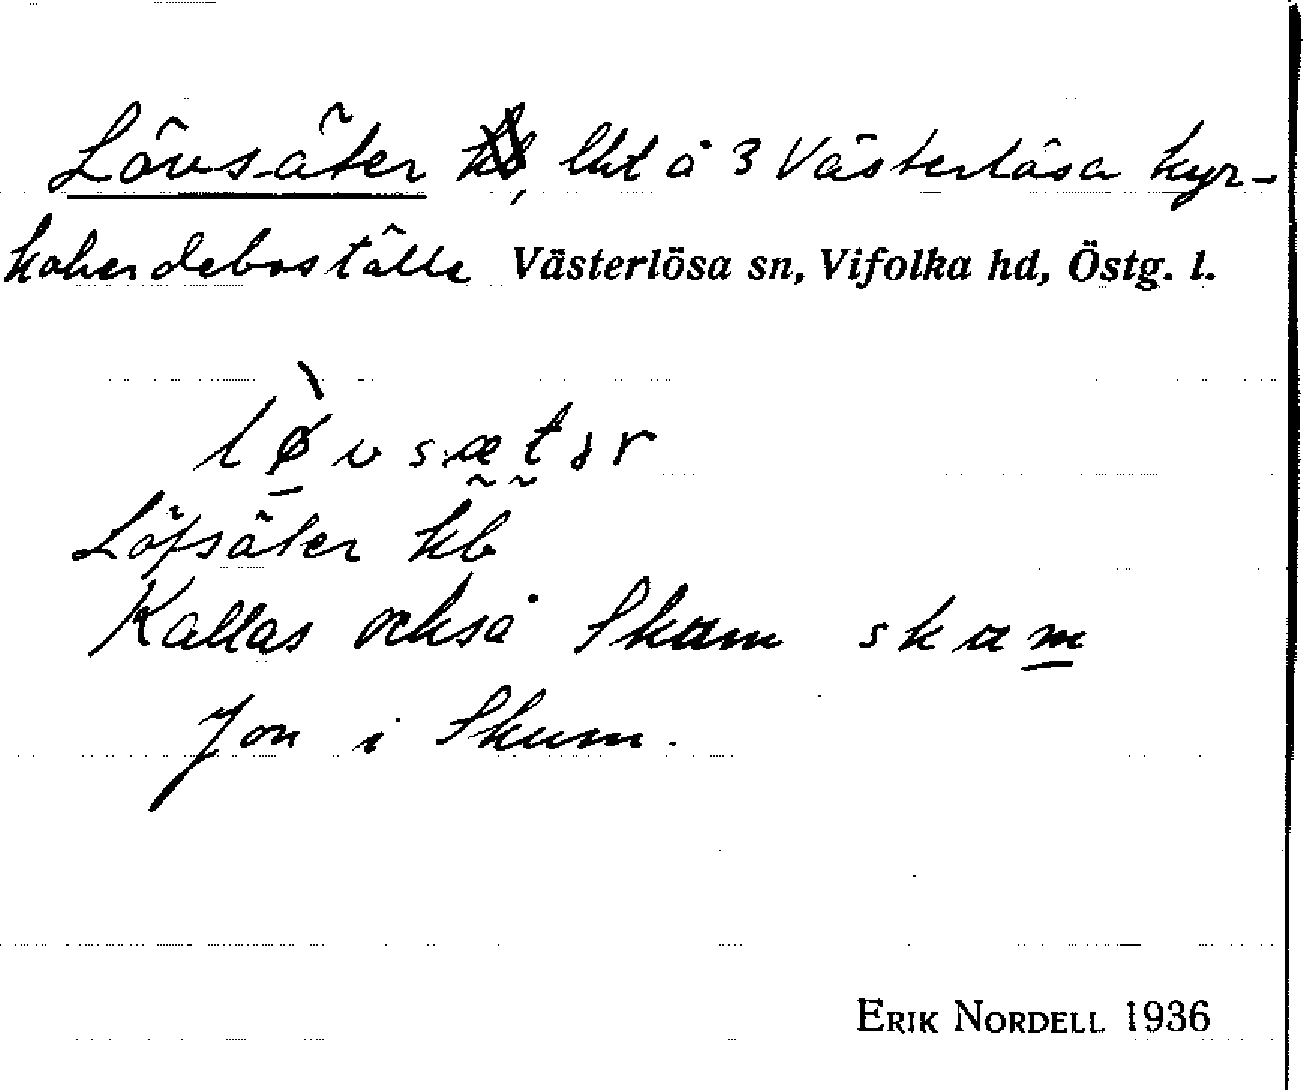 Lövsäter kb, lht å 3 Västerlösa kyr-
koherdeboställe Västerlösa sn, Vifolka hd, Östg. l.
lø̀vsætər
Löfsäter kb
Kallas också Skum skum
Jon i Skum.
ERIK NORDELL 1936